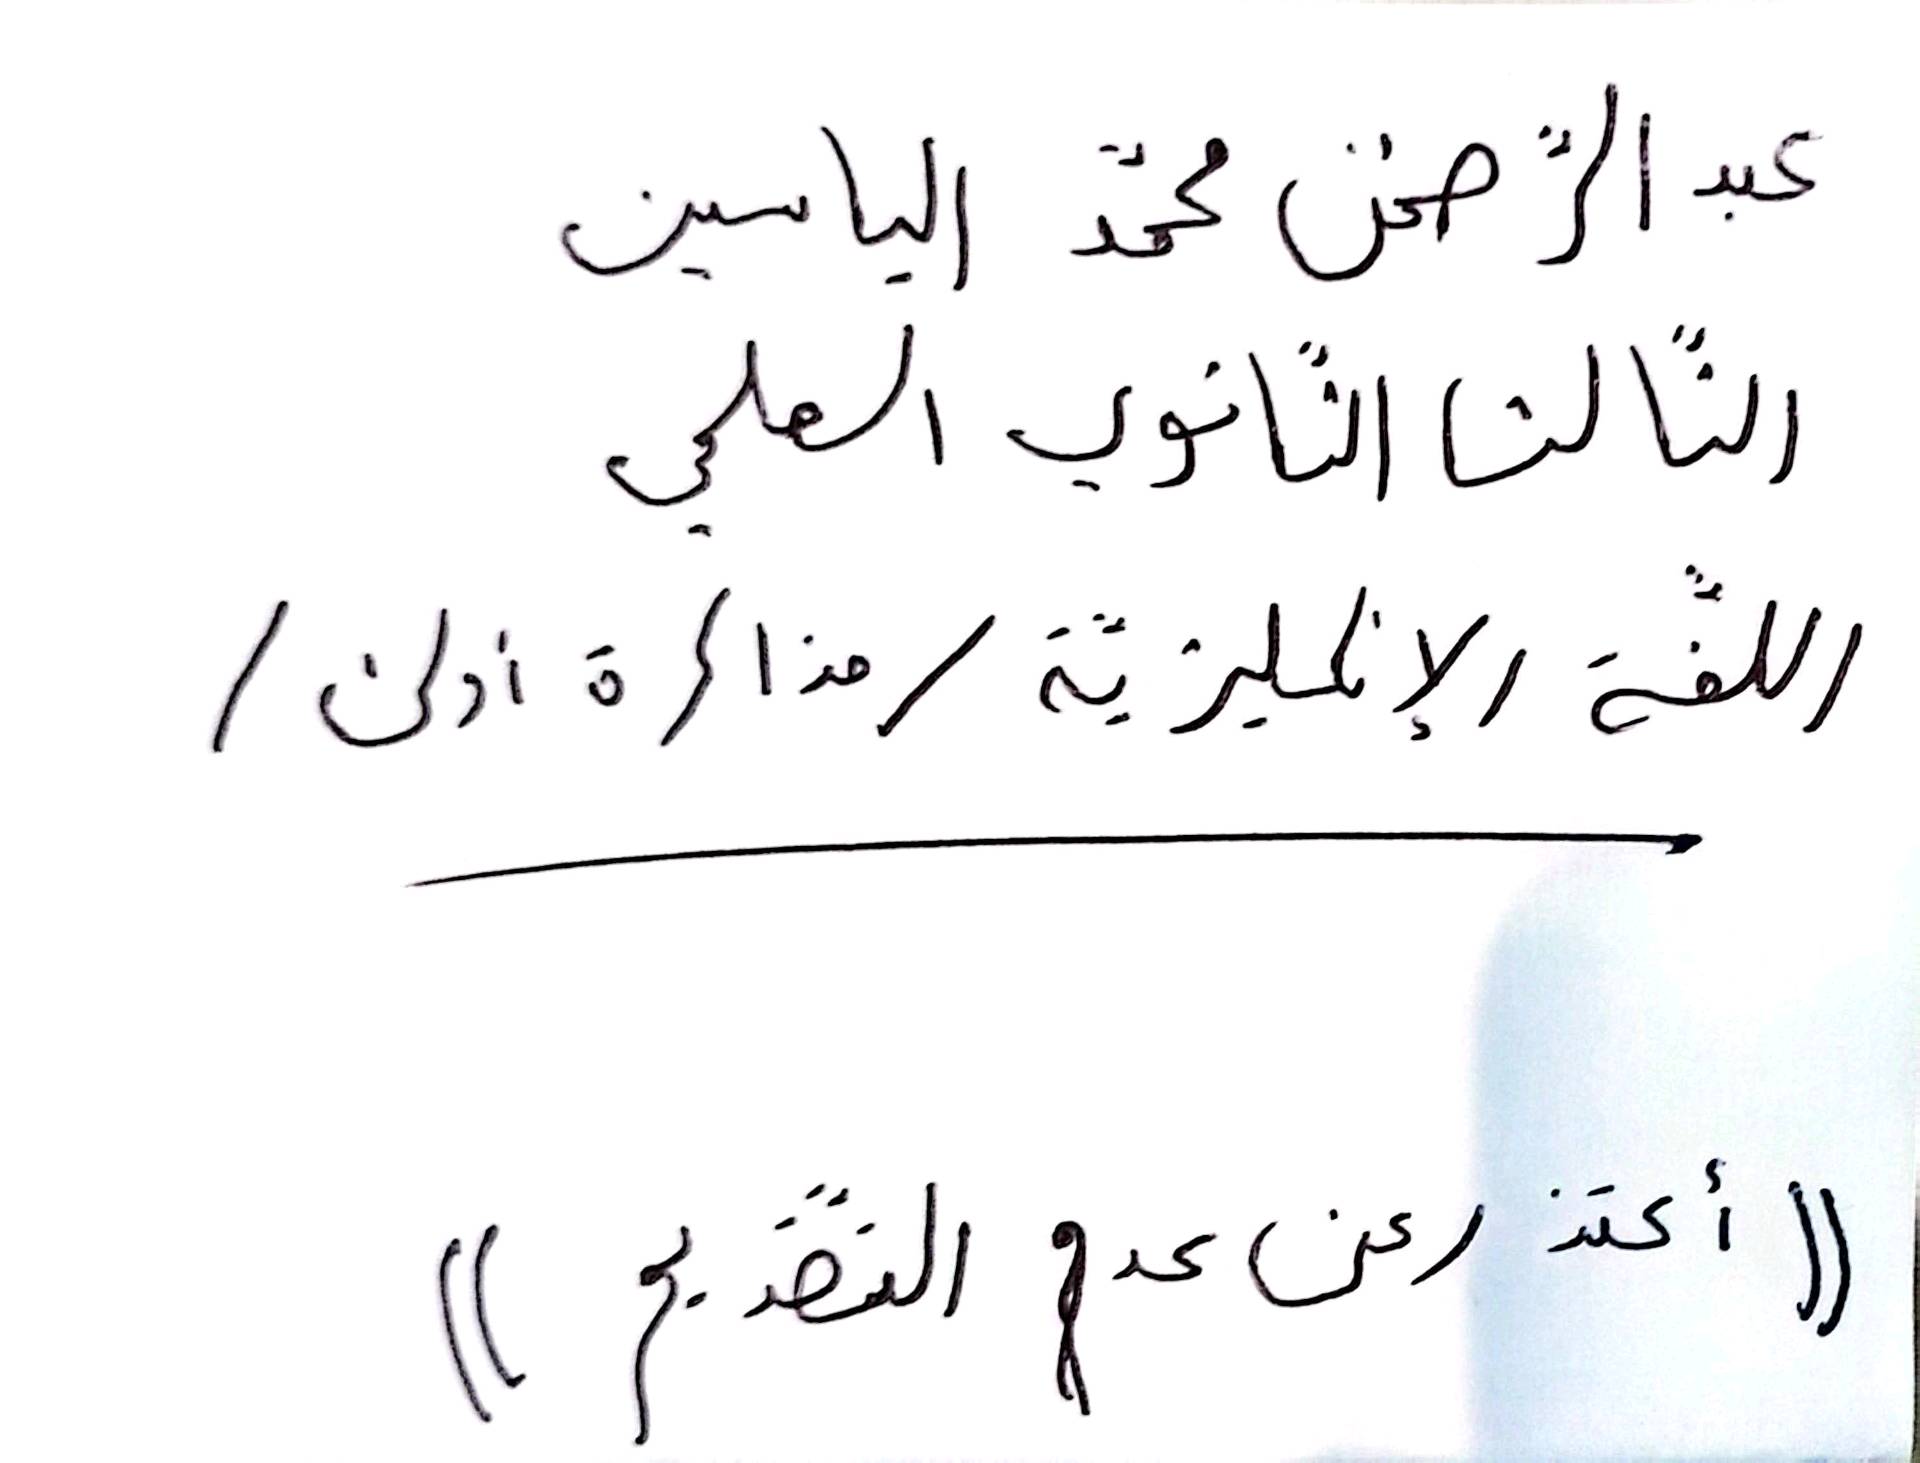 عبد الرّحمٰن محمّد الياسين
الثّالث الثّانوي العلمي
اللّغة الإنكليزيّة /مذاكرة أولى/
((أعتذر عن عدم التّقديم))